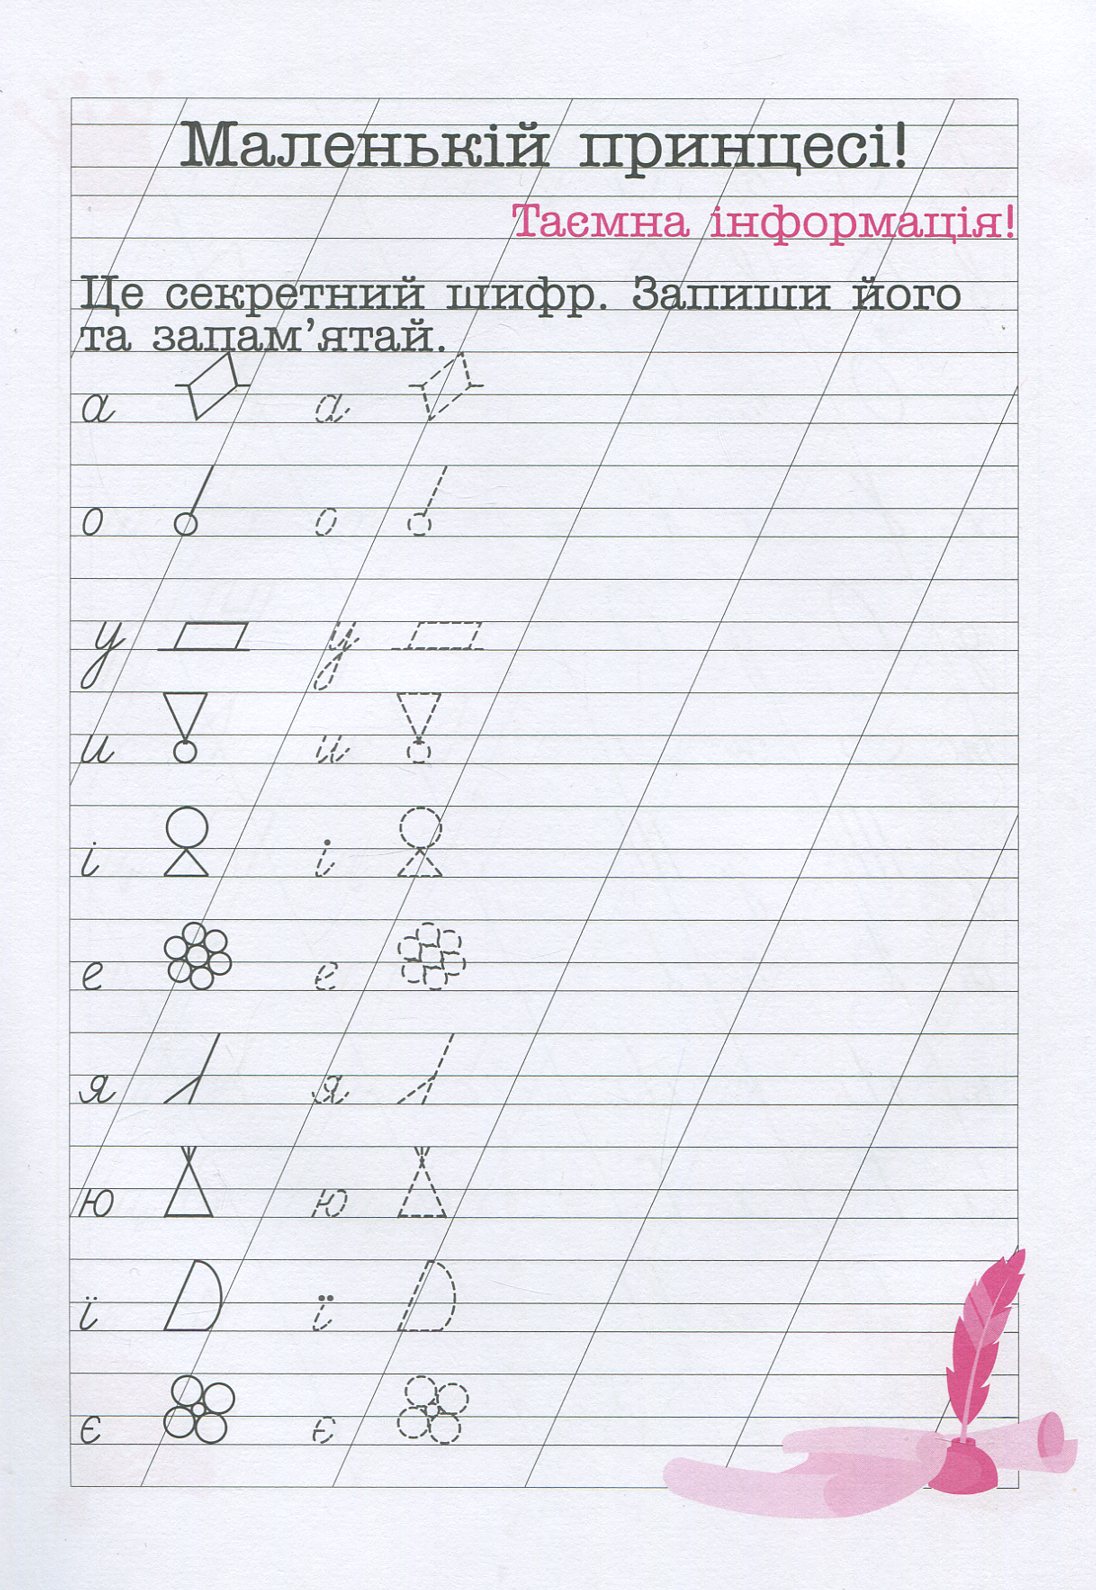 Маленькій принцесі!
Таємна інформація!
Це секретний шифр. Запиши його
та запам’ятай.
а а
о о
у у
и и
і і
е е
я я
ю ю
ї ї
є є